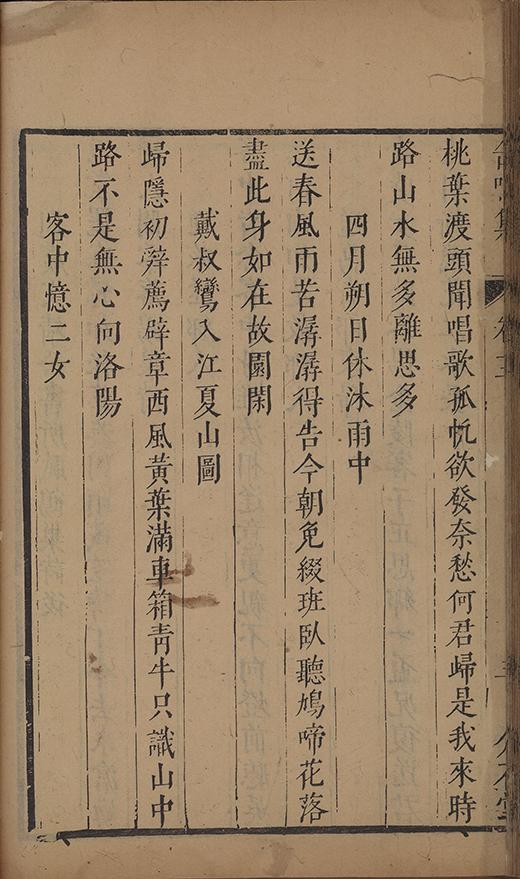 桃葉渡頭聞唱歌孤帆欲發奈愁何君歸是我來時
路山水無多離思多
四月朔日休沐雨中
送春風雨苦潺潺得告今朝免綴班臥聽鳩啼花落
盡此身如在故園閑
戴叔鸞入江夏山圖
歸隱初辤薦辟章西風黃葉滿車箱靑牛只識山中
路不是無心向洛陽
客中憶二女